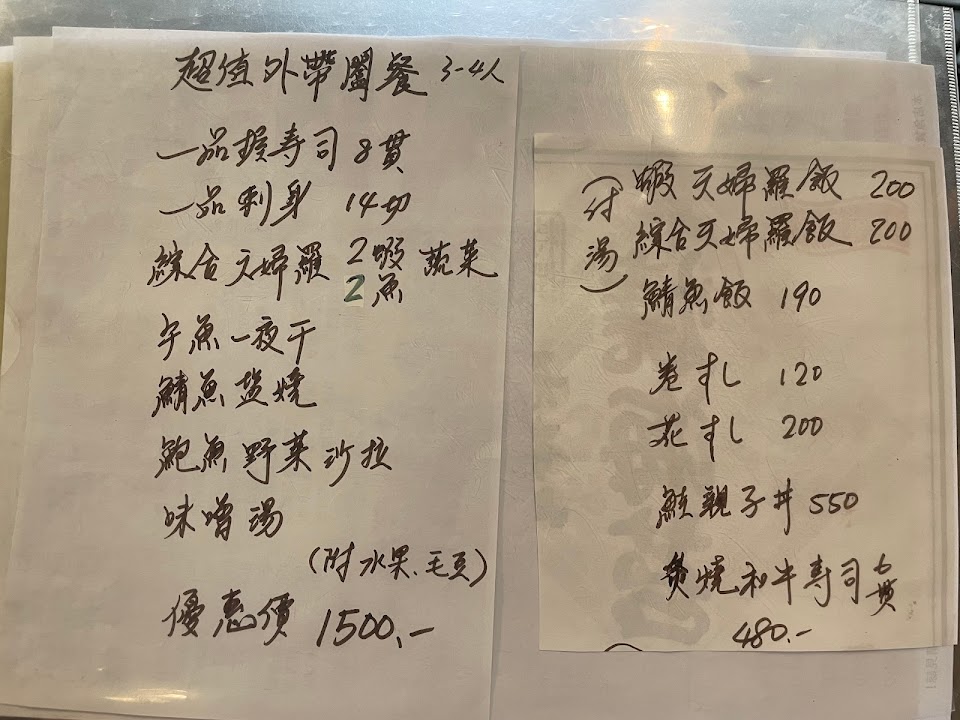 超值外帶闔餐 3-4人
一品握寿司 8貫
一品刺身 14切
綜合天婦羅 2蝦 蔬菜
2魚
午魚一夜干
鯖魚塩燒
鮑魚野菜沙拉
味噌湯
(附水果、毛豆)
優惠價 1500.-
(付湯)
蝦天婦羅飯 200
綜合天婦羅飯 200
鯖魚飯 190
卷すし 120
花すし 200
鮭親子丼 550
炙燒和牛寿司 6貫
480.-